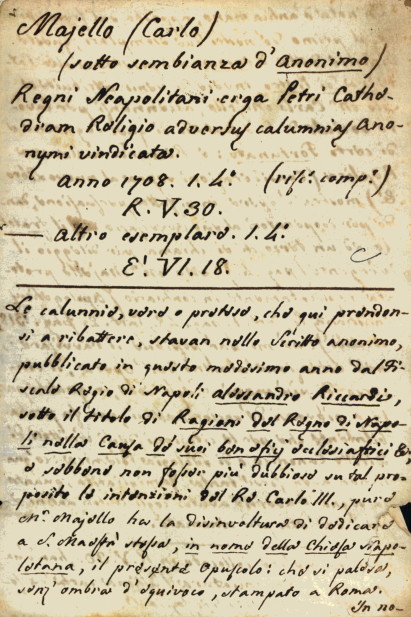 Majello (Carlo)
(sotto sembianza d'Anonimo)
Regni Neapolitani erga Petri Cathe-
dram Religio adversus calumnias Ano-
nymi vindicata.
Anno 1708. 1. 4°. (rifᵗ. compᵗ.)
R. V. 30.
— Altro esemplare. 1. 4°.
E'. VI. 18.
Le calunnie, vere o pretese, che qui prendon-
si a ribattere, stavan nello Scritto anonimo,
pubblicato in questo medesimo anno dal Fi-
scale Regio di Napoli Alessandro Riccardi,
sotto il titolo di Ragioni del Regno di Napo-
li nella Causa de' suoi beneficj ecclesiastici &c,
e sebbene non fosser più dubbiose su tal pro-
posito le intenzioni del Re Carlo III., pure
Mr. Majello ha la disinvoltura di dedicare
a S. Maestà stessa, in nome della Chiesa Napo-
letana, il presente Opuscolo: che si palesa,
senz' ombra d'equivoco, stampato a Roma.
In no-